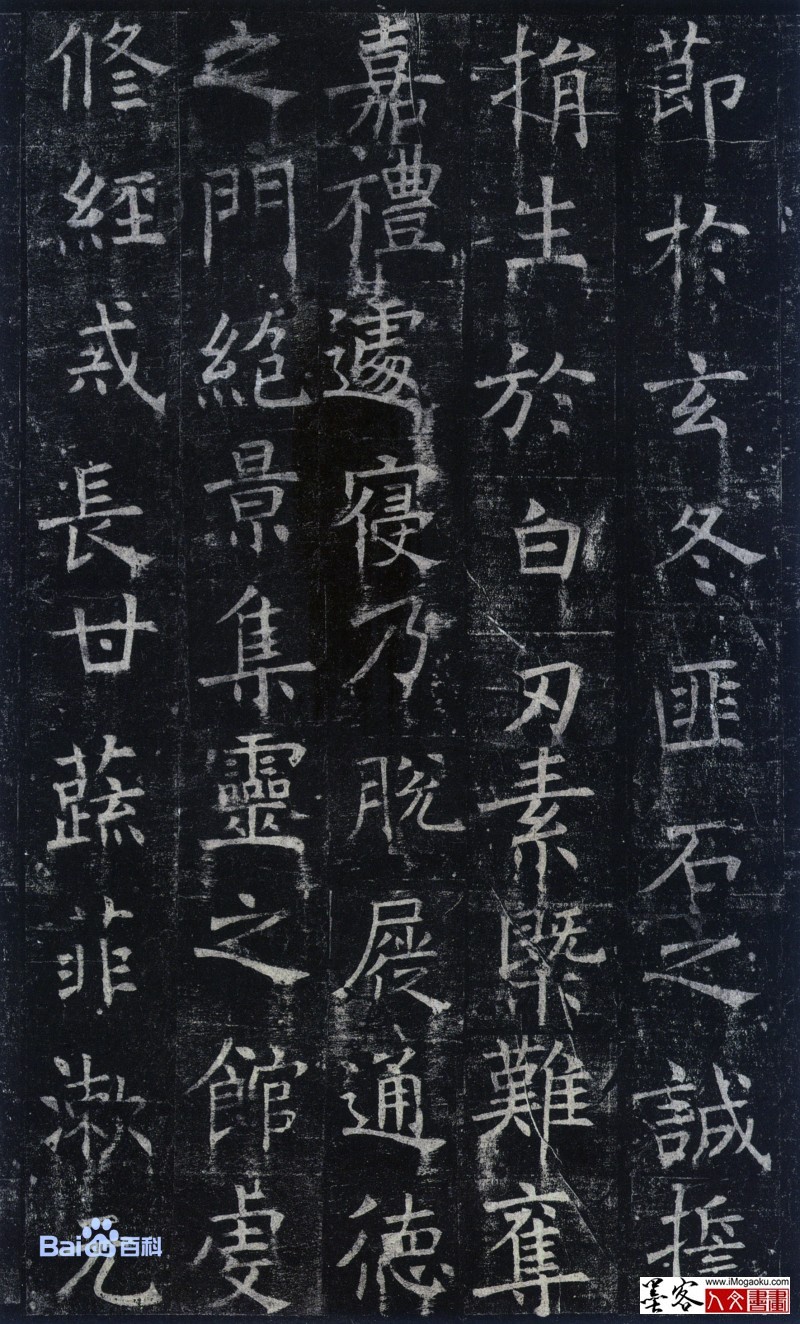 節於玄冬匪石之誠擔
捐生於白刃素槩難奪
嘉禮遽寑乃脫屣通德
之門絶景集靈之館虔
修經戒長甘蔬菲漱元
Bai百科
www.iMogaoku.com
墨客人文書畫